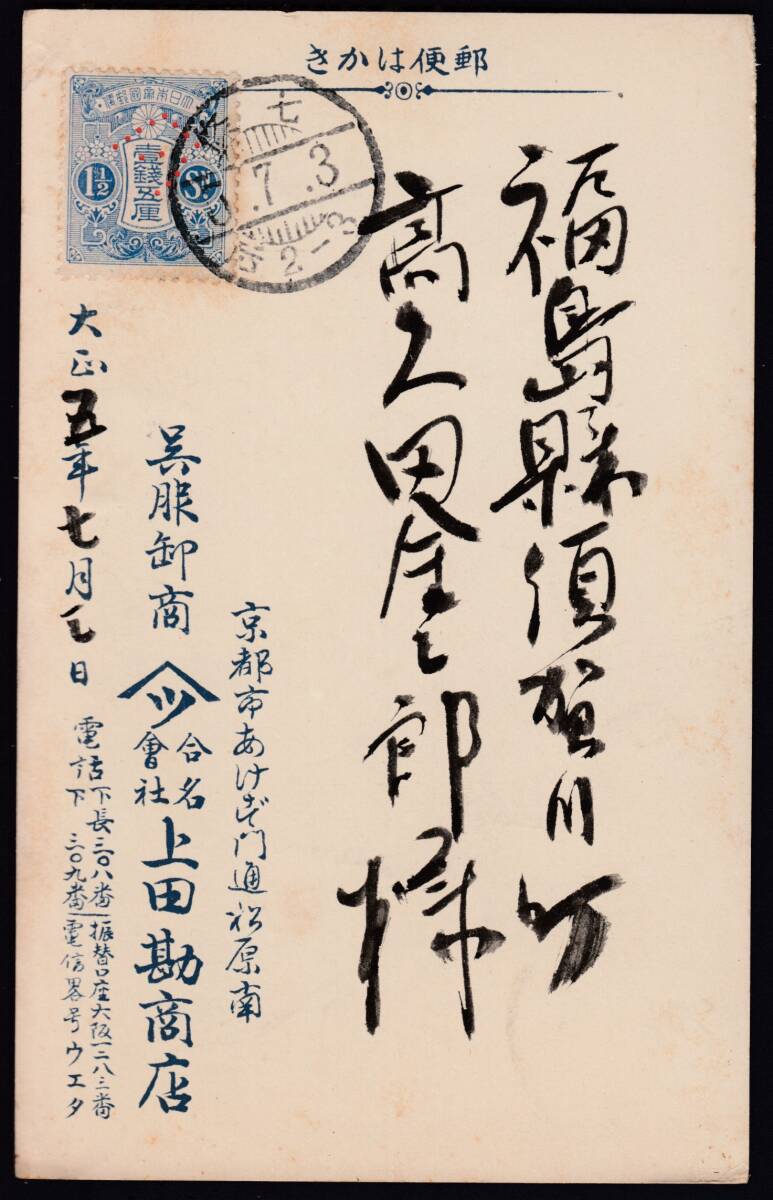 きかは便郵
大日本帝國郵便
壹錢五厘
1½
Sn
七
.7.3
2-3
福島縣須賀川町
高久田金七郎様
京都市あけず門通松原南
呉服卸商
ツ
合名
會社
上田勘商店
大正五年七月三日
電話下長三〇八番
下三〇九番
振替口座大阪一二八三番
電信畧号ウエタ